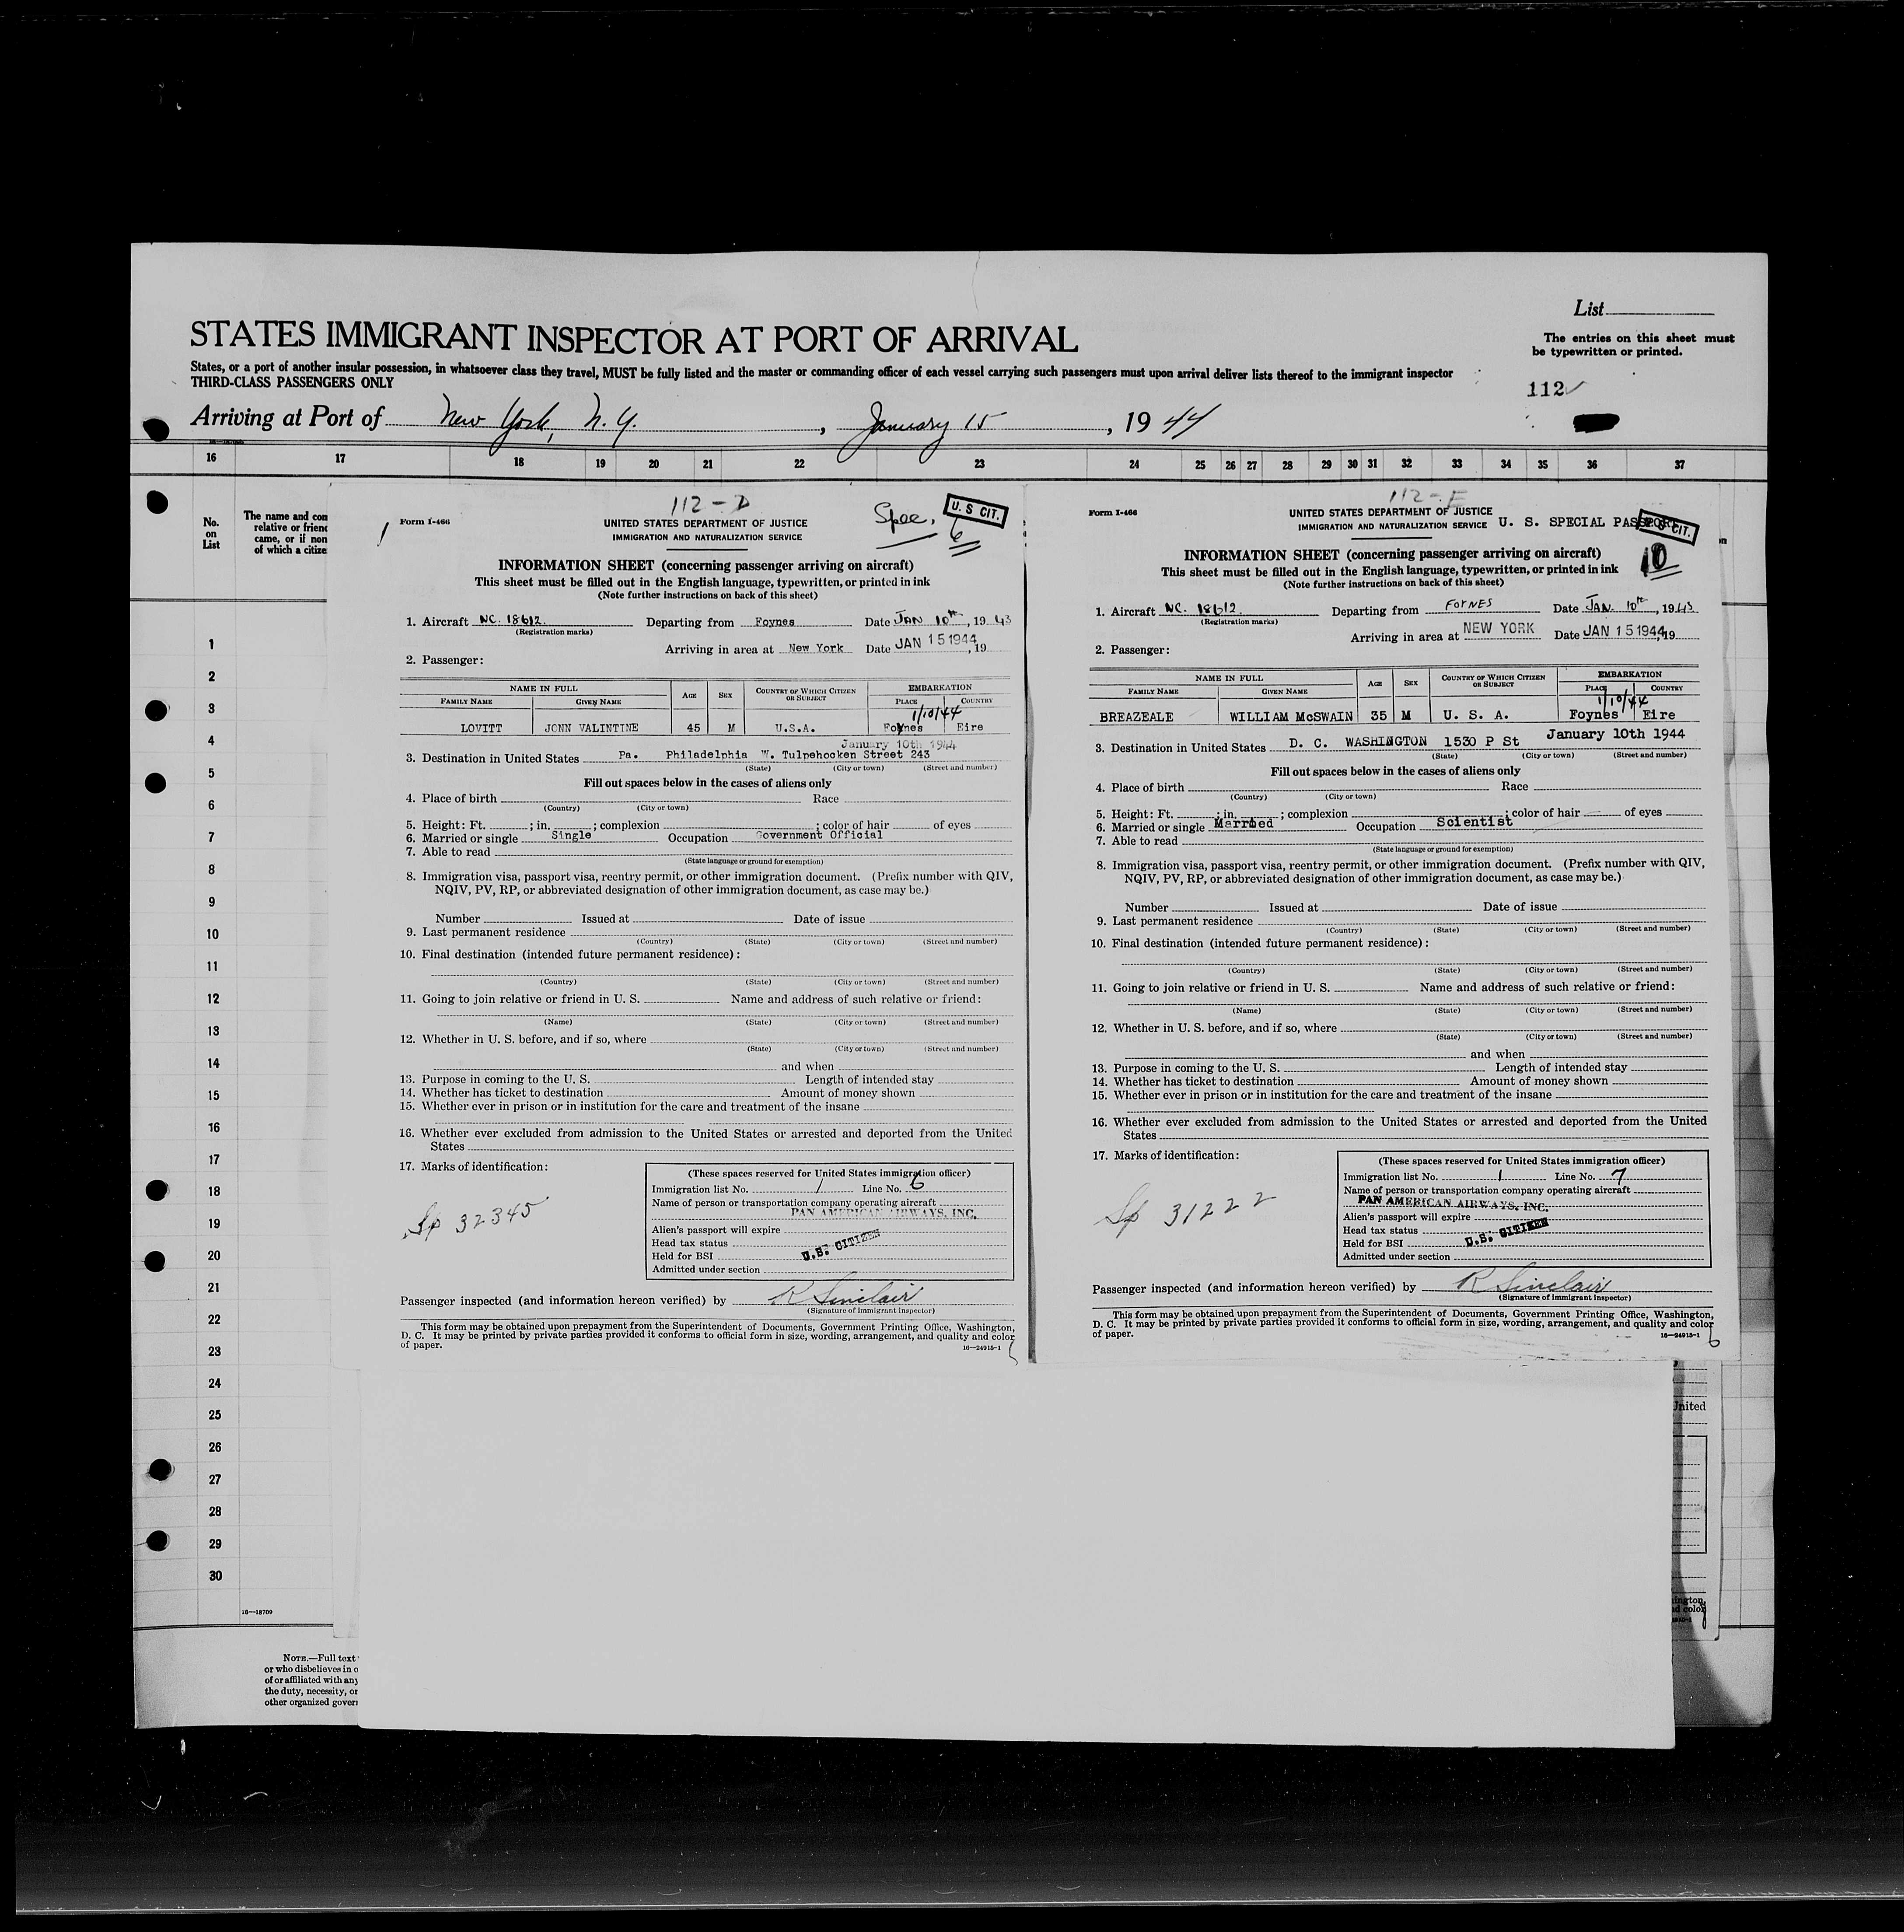 List
STATES IMMIGRANT INSPECTOR AT PORT OF ARRIVAL
The entries on this sheet must
be typewritten or printed.
States, or a port of another insular possession, in whatsoever class they travel, MUST be fully listed and the master or commanding officer of each vessel carrying such passengers must upon arrival deliver lists thereof to the immigrant inspector
THIRD-CLASS PASSENGERS ONLY
112
Arriving at Port of New York, N. Y. , January 15 , 1944
16 17 18 19 20 21 22 23 24 25 26 27 28 29 30 31 32 33 34 35 36 37
No.
on
List
The name and con
relative or friend
came, or if non
of which a citize
1
2
3
4
5
6
7
8
9
10
11
12
13
14
15
16
17
18
19
20
21
22
23
24
25
26
27
28
29
30
16—18709
NOTE.—Full text
or who disbelieves in o
of or affiliated with any
the duty, necessity, or
other organized gover
112 - D
Form I-466
UNITED STATES DEPARTMENT OF JUSTICE
IMMIGRATION AND NATURALIZATION SERVICE
Spec.
U. S CIT.
6
INFORMATION SHEET (concerning passenger arriving on aircraft)
This sheet must be filled out in the English language, typewritten, or printed in ink
(Note further instructions on back of this sheet)
1. Aircraft NC. 18612. Departing from Foynes Date JAN 10th, 19 43
(Registration marks)
Arriving in area at New York Date JAN 15 1944, 19
2. Passenger:
NAME IN FULL AGE SEX COUNTRY OF WHICH CITIZEN OR SUBJECT EMBARKATION
FAMILY NAME GIVEN NAME PLACE COUNTRY
1/10/44
LOVITT JONN VALINTINE 45 M U.S.A. Foynes Eire
January 10th 1944
3. Destination in United States Pa. Philadelphia W. Tulpehocken Street 243
(State) (City or town) (Street and number)
Fill out spaces below in the cases of aliens only
4. Place of birth Race
(Country) (City or town)
5. Height: Ft. ; in. ; complexion ; color of hair of eyes
6. Married or single Single Occupation Government Official
7. Able to read
(State language or ground for exemption)
8. Immigration visa, passport visa, reentry permit, or other immigration document. (Prefix number with QIV,
NQIV, PV, RP, or abbreviated designation of other immigration document, as case may be.)
Number Issued at Date of issue
9. Last permanent residence
(Country) (State) (City or town) (Street and number)
10. Final destination (intended future permanent residence):
(Country) (State) (City or town) (Street and number)
11. Going to join relative or friend in U. S. Name and address of such relative or friend:
(Name) (State) (City or town) (Street and number)
12. Whether in U. S. before, and if so, where
(State) (City or town) (Street and number)
and when
13. Purpose in coming to the U. S. Length of intended stay
14. Whether has ticket to destination Amount of money shown
15. Whether ever in prison or in institution for the care and treatment of the insane
16. Whether ever excluded from admission to the United States or arrested and deported from the United
States
17. Marks of identification:
Sp 32345
(These spaces reserved for United States immigration officer)
Immigration list No. 1 Line No. 6
Name of person or transportation company operating aircraft
PAN AMERICAN AIRWAYS, INC.
Alien's passport will expire
Head tax status
U.S. CITIZEN
Held for BSI
Admitted under section
Passenger inspected (and information hereon verified) by R Sinclair
(Signature of immigrant inspector)
This form may be obtained upon prepayment from the Superintendent of Documents, Government Printing Office, Washington,
D. C. It may be printed by private parties provided it conforms to official form in size, wording, arrangement, and quality and color
of paper.
16—24915-1
112 - E
Form I-466
UNITED STATES DEPARTMENT OF JUSTICE
IMMIGRATION AND NATURALIZATION SERVICE U. S. SPECIAL PASSPORT
U. S CIT.
10
INFORMATION SHEET (concerning passenger arriving on aircraft)
This sheet must be filled out in the English language, typewritten, or printed in ink
(Note further instructions on back of this sheet)
1. Aircraft NC. 18612. Departing from FOYNES Date JAN. 10th, 1943
(Registration marks)
Arriving in area at NEW YORK Date JAN 15 1944, 19
2. Passenger:
NAME IN FULL AGE SEX COUNTRY OF WHICH CITIZEN OR SUBJECT EMBARKATION
FAMILY NAME GIVEN NAME PLACE COUNTRY
1/10/44
BREAZEALE WILLIAM McSWAIN 35 M U. S. A. Foynes Eire
January 10th 1944
3. Destination in United States D. C. WASHINGTON 1530 P St
(State) (City or town) (Street and number)
Fill out spaces below in the cases of aliens only
4. Place of birth Race
(Country) (City or town)
5. Height: Ft. ; in. ; complexion ; color of hair of eyes
6. Married or single Married Occupation Scientist
7. Able to read
(State language or ground for exemption)
8. Immigration visa, passport visa, reentry permit, or other immigration document. (Prefix number with QIV,
NQIV, PV, RP, or abbreviated designation of other immigration document, as case may be.)
Number Issued at Date of issue
9. Last permanent residence
(Country) (State) (City or town) (Street and number)
10. Final destination (intended future permanent residence):
(Country) (State) (City or town) (Street and number)
11. Going to join relative or friend in U. S. Name and address of such relative or friend:
(Name) (State) (City or town) (Street and number)
12. Whether in U. S. before, and if so, where
(State) (City or town) (Street and number)
and when
13. Purpose in coming to the U. S. Length of intended stay
14. Whether has ticket to destination Amount of money shown
15. Whether ever in prison or in institution for the care and treatment of the insane
16. Whether ever excluded from admission to the United States or arrested and deported from the United
States
17. Marks of identification:
Sp 31222
(These spaces reserved for United States immigration officer)
Immigration list No. 1 Line No. 7
Name of person or transportation company operating aircraft
PAN AMERICAN AIRWAYS, INC.
Alien's passport will expire
Head tax status
U.S. CITIZEN
Held for BSI
Admitted under section
Passenger inspected (and information hereon verified) by R Sinclair
(Signature of immigrant inspector)
This form may be obtained upon prepayment from the Superintendent of Documents, Government Printing Office, Washington,
D. C. It may be printed by private parties provided it conforms to official form in size, wording, arrangement, and quality and color
of paper.
16—24915-1
United
ington,
d color